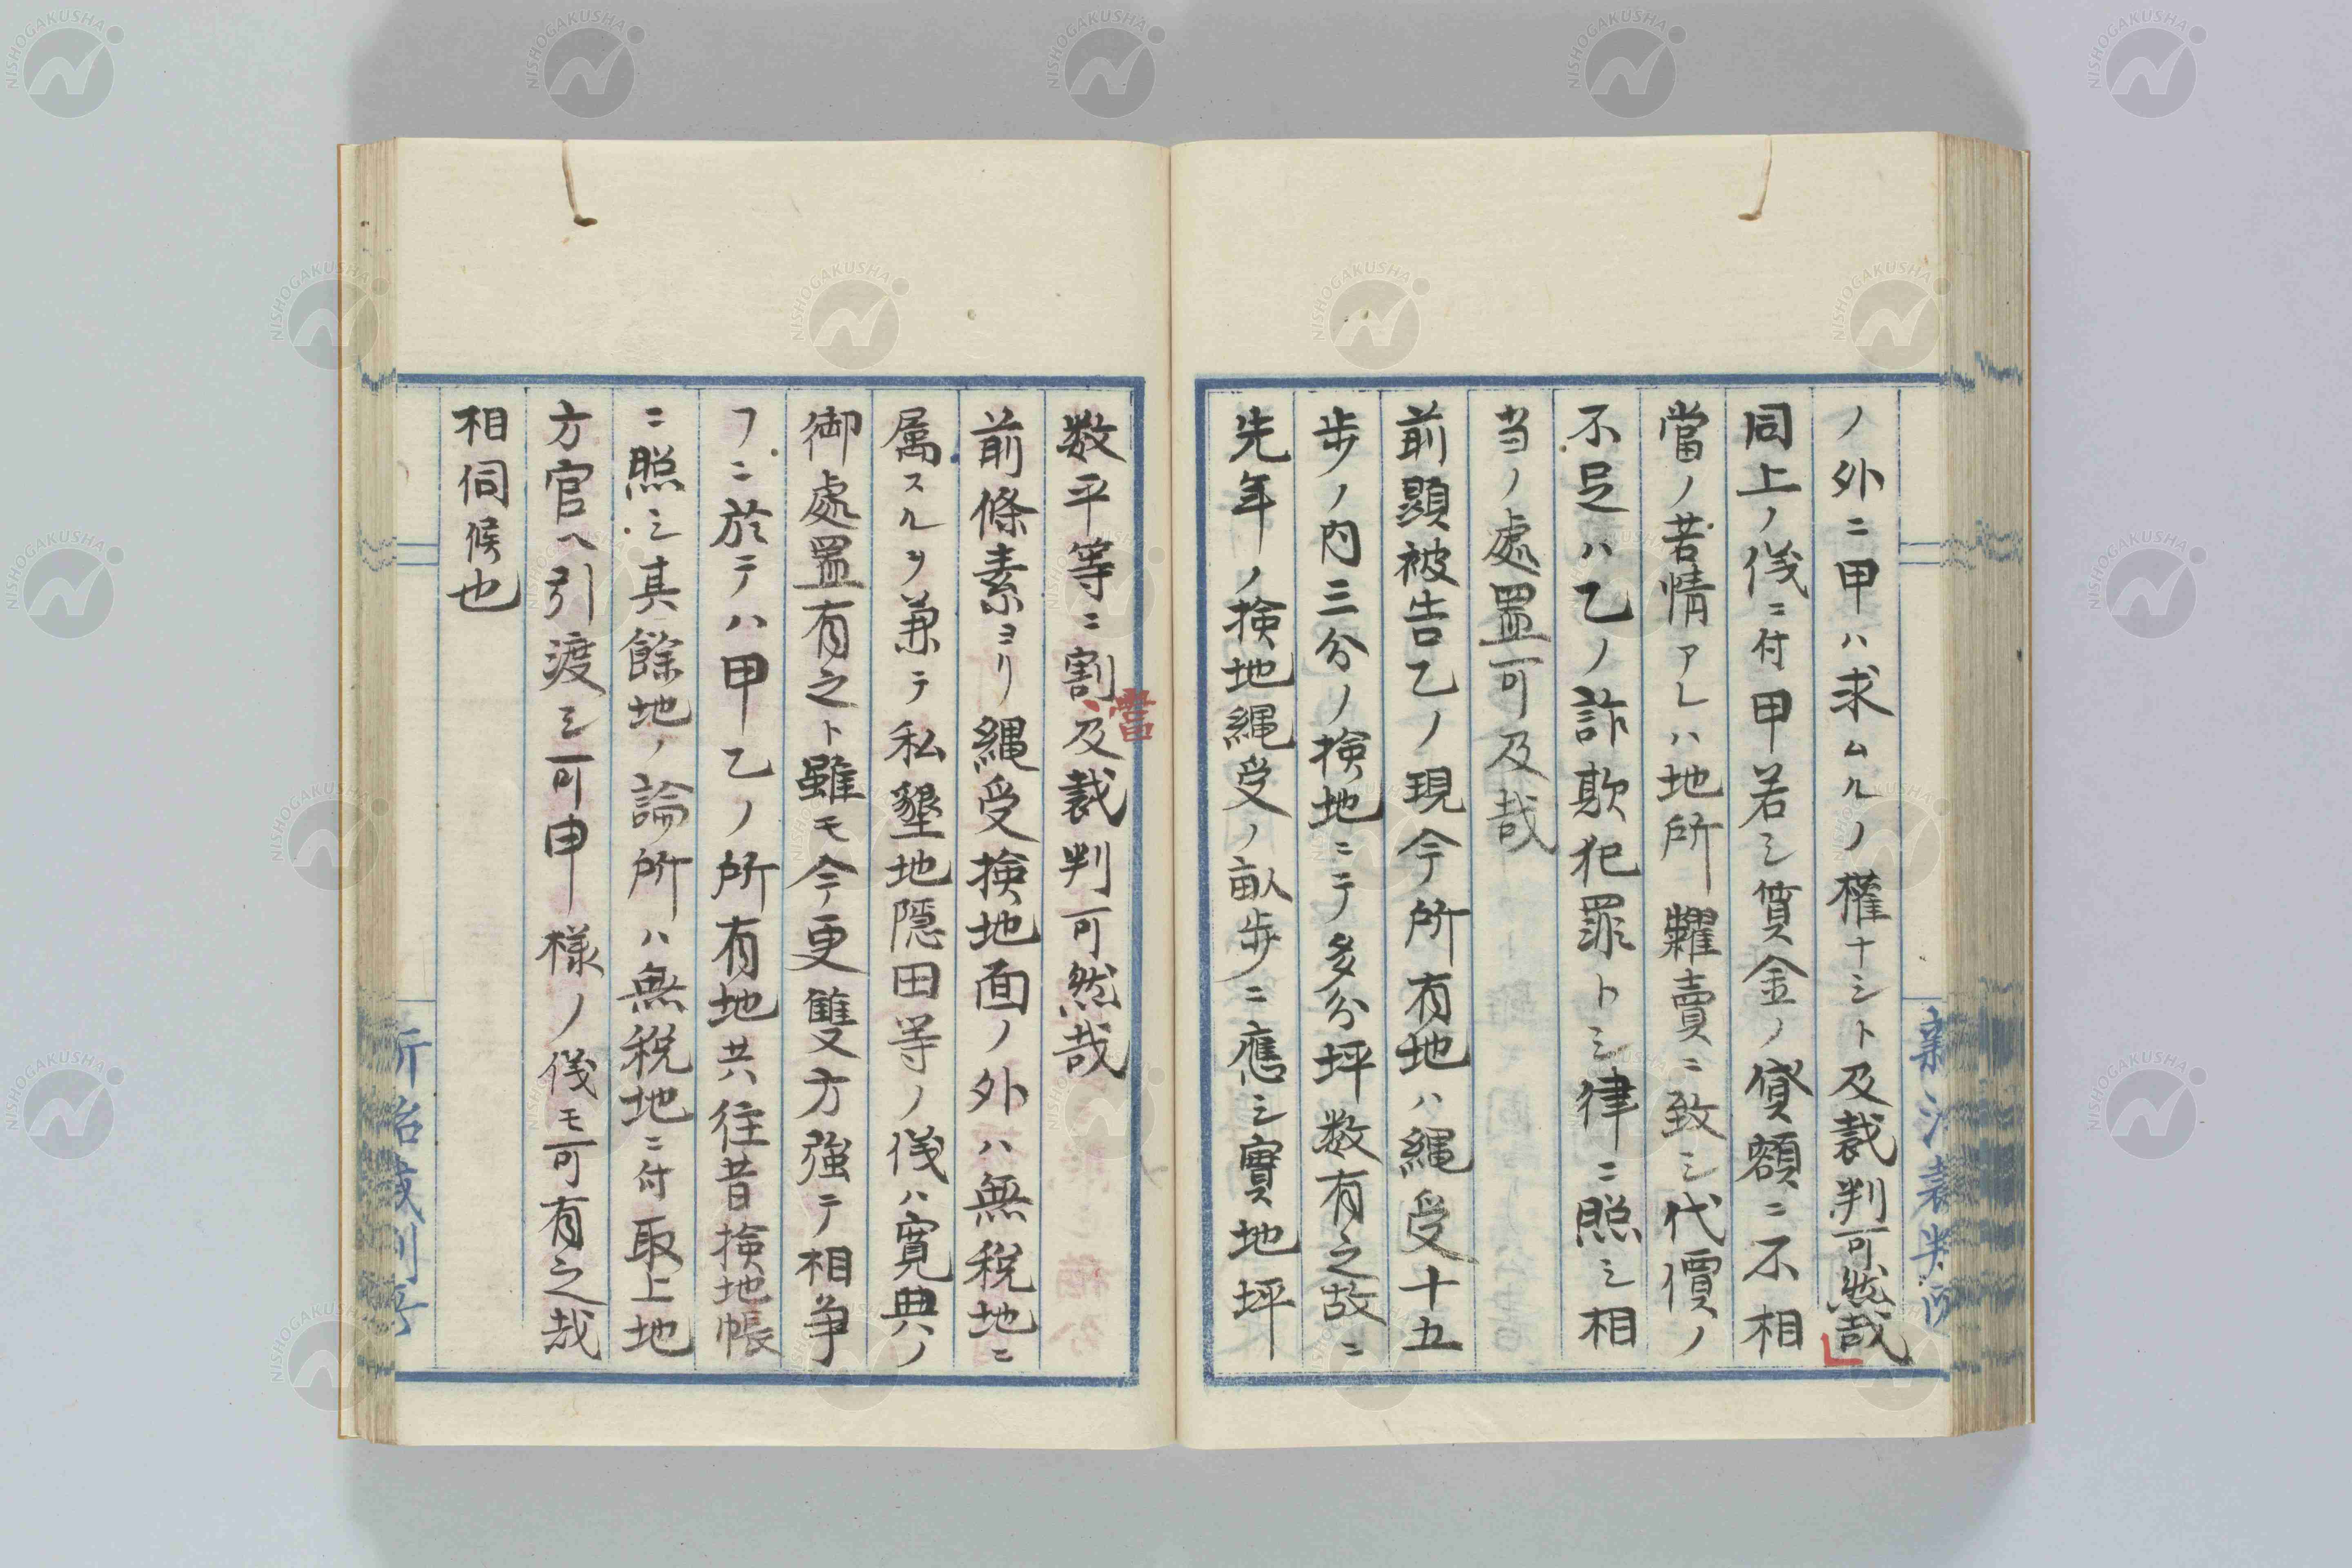 ノ外ニ甲ハ求ムルノ權ナシト及裁判可然哉
同上ノ儀ニ付甲若シ質金ノ貸額ニ不相
當ノ苦情アレハ地所糶賣ニ致シ代價ノ
不足ハ乙ノ詐欺犯罪トシ律ニ照シ相
当ノ處置可及哉
前顕被告乙ノ現今所有地ハ縄受十五
歩ノ内三分ノ検地ニテ多分坪数有之故ニ
先年ノ検地縄受ノ畝歩ニ應シ實地坪
数平等ニ割及裁判可然哉
當
前條素ヨリ縄受検地面ノ外ハ無税地ニ
属スルヲ兼テ私墾地隠田等ノ儀ハ寛典ノ
御處置有之ト雖モ今更雙方強テ相争
フニ於テハ甲乙ノ所有地共往昔検地帳
ニ照シ其餘地ノ論所ハ無税地ニ付取上地
方官ヘ引渡シ可申様ノ儀モ可有之哉
相伺候也
新治裁判所
NISHOGAKUSHA